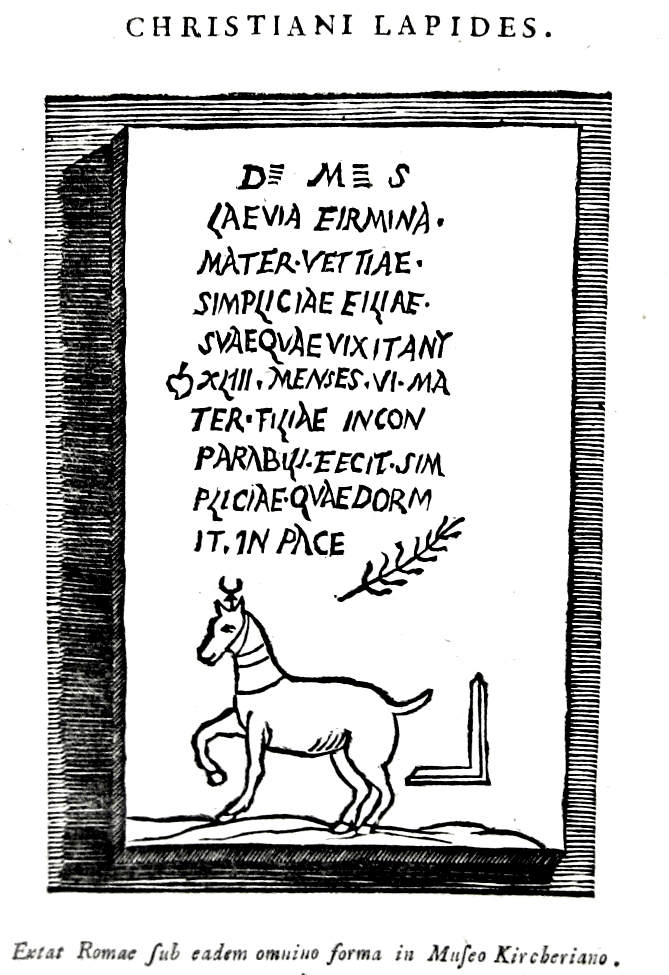 CHRISTIANI LAPIDES.
D M S
LAEVIA FIRMINA·
MATER·VETTIAE·
SIMPLICIAE FILIAE·
SVAEQVAEVIXITANN
XLIII. MENSES.VI·MA
TER·FILIAE INCON
PARABILI·FECIT·SIM
PLICIAE·QVAEDORM
IT. IN PACE
Extat Romae ſub eadem omnino forma in Muſeo Kircheriano.